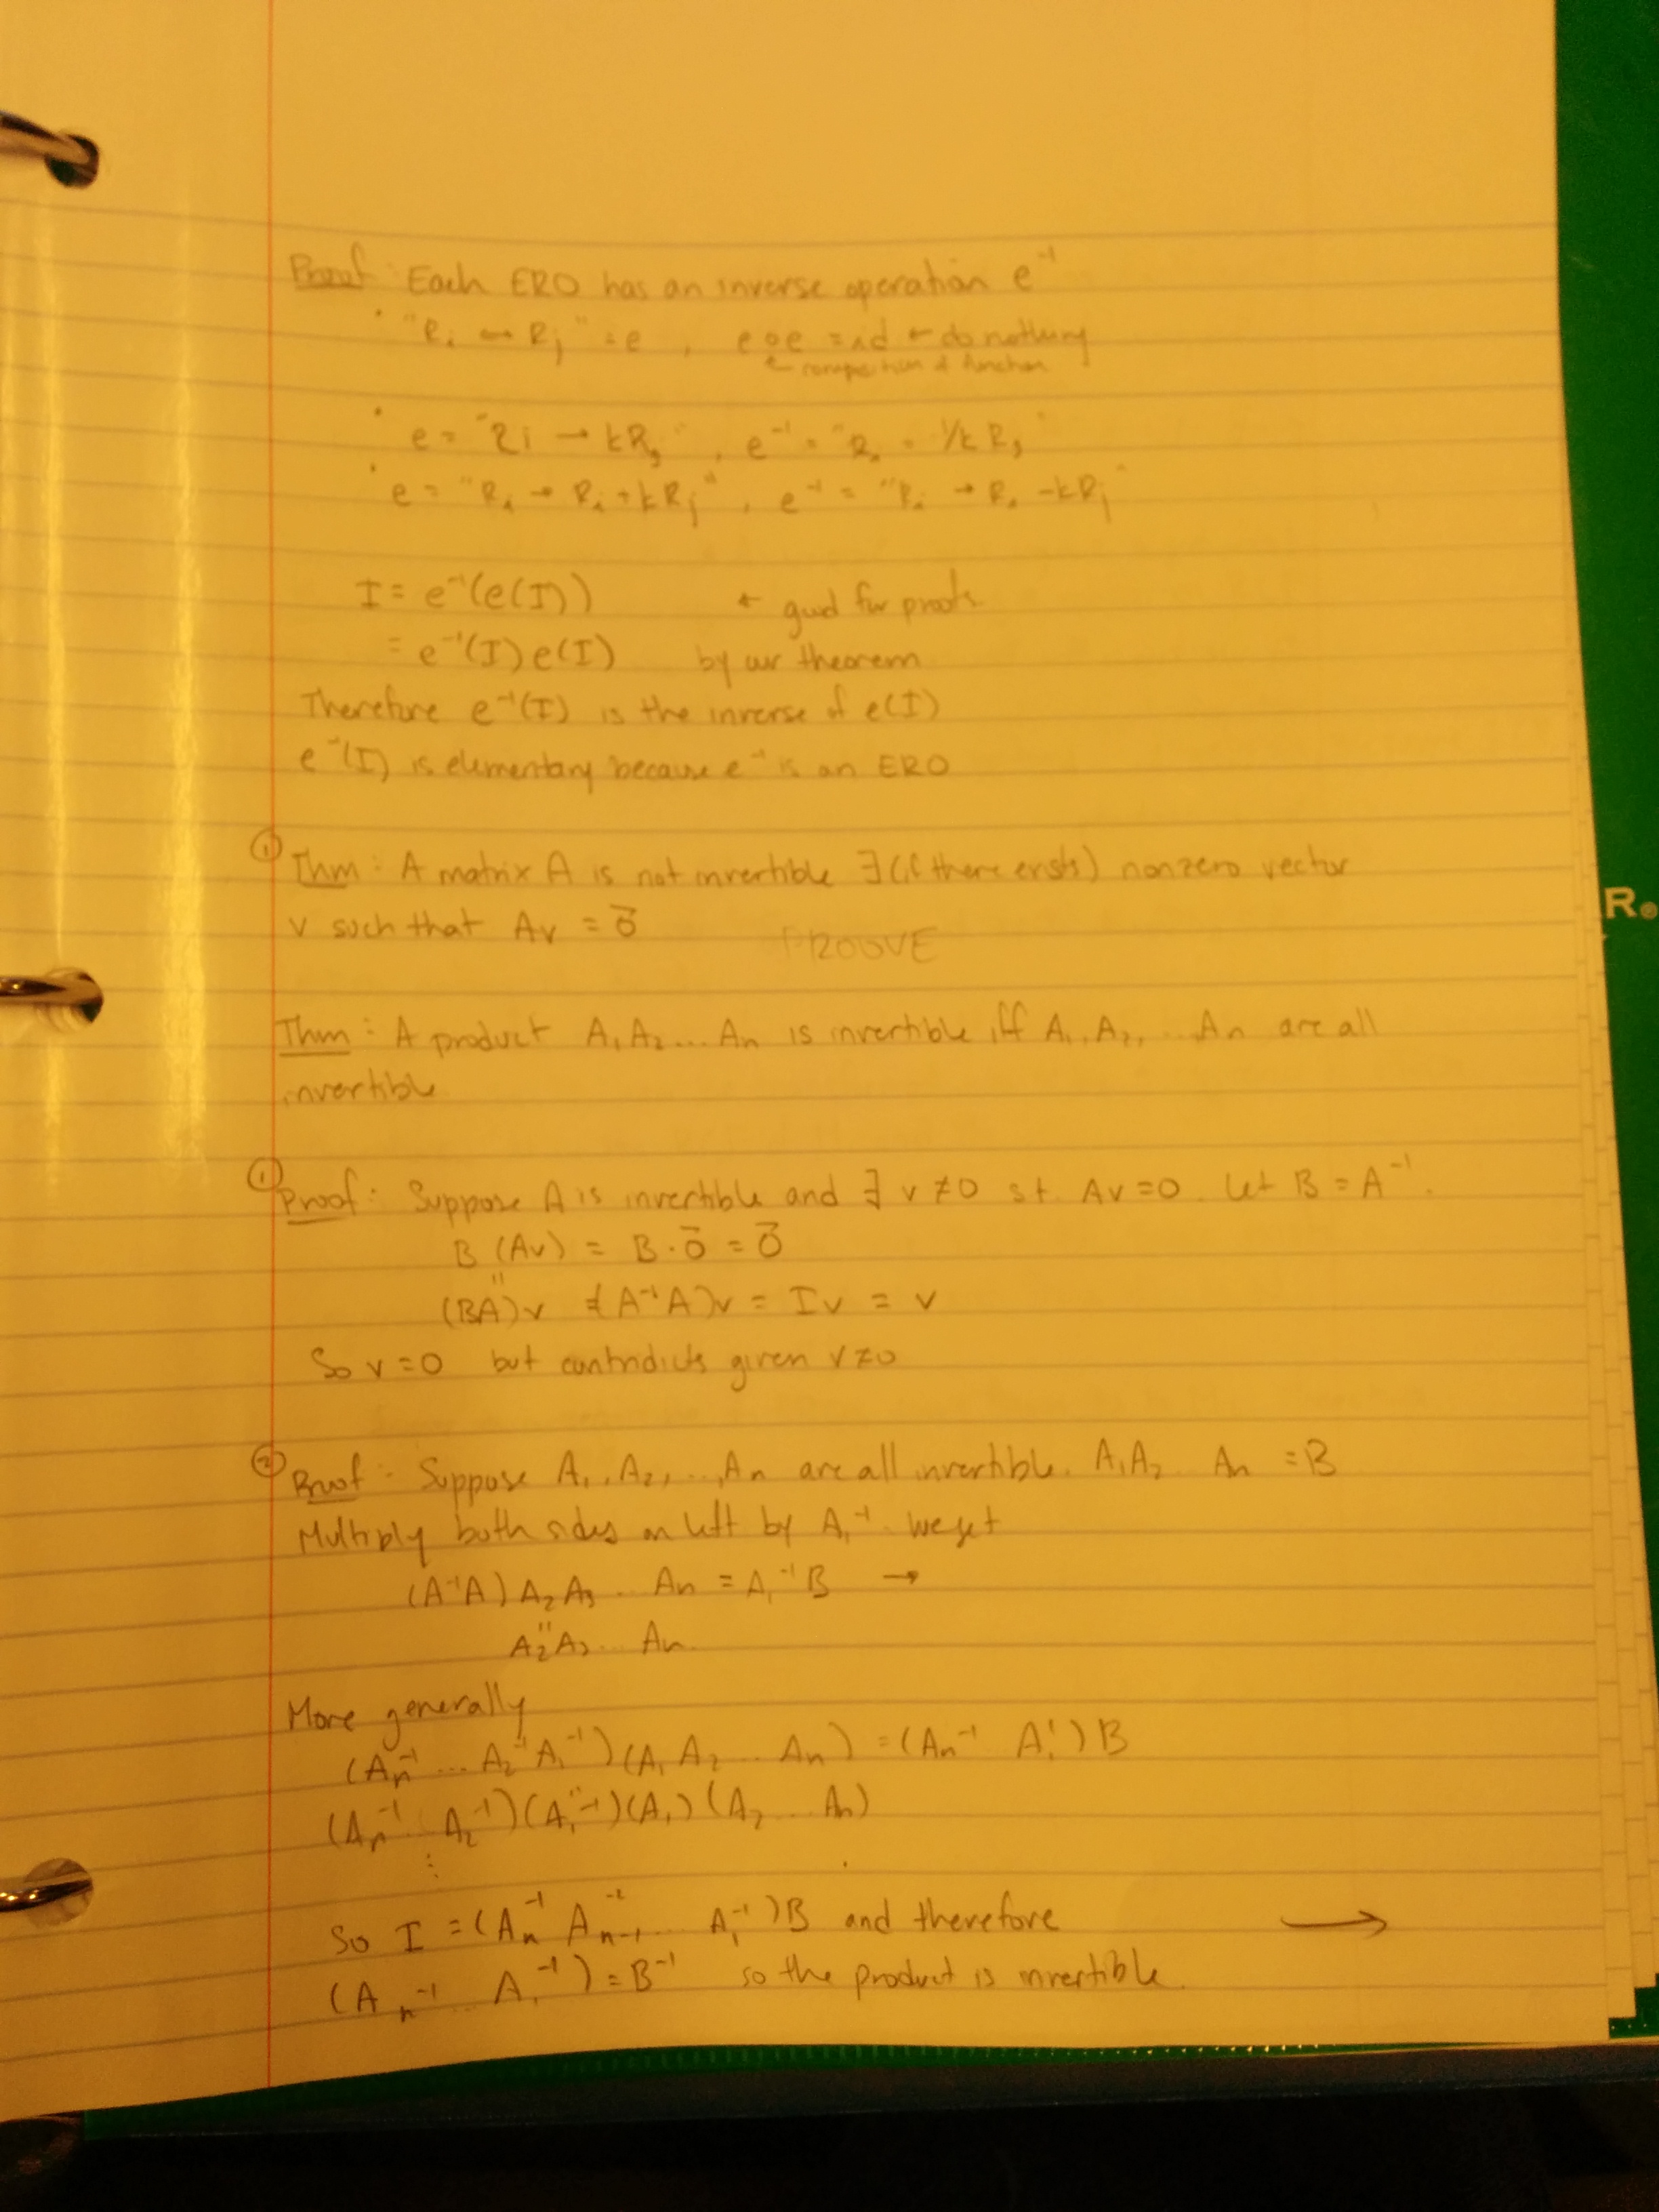 Proof: Each ERO has an inverse operation e⁻¹
• "Ri ↔ Rj" = e , e∘e = id ← do nothing
composition of function
• e = "Ri → kRj" , e⁻¹ = "Ri = 1/k Rj"
• e = "Ri → Ri + kRj" , e⁻¹ = "Ri → Ri - kRj"
I = e⁻¹(e(I)) ← good for proofs
= e⁻¹(I) e(I) by our theorem
Therefore e⁻¹(I) is the inverse of e(I)
e⁻¹(I) is elementary because e⁻¹ is an ERO
① Thm: A matrix A is not invertible ∃ (if there exists) nonzero vector
v such that Av = 0⃗
PROOVE
Thm: A product A₁A₂...An is invertible iff A₁, A₂, ... An are all
invertible
① Proof: Suppose A is invertible and ∃ v ≠ 0 st. Av = 0. Let B = A⁻¹.
B(Av) = B·0⃗ = 0⃗
"
(BA)v = (A⁻¹A)v = Iv = v
So v = 0 but contradicts given v ≠ 0
② Proof: Suppose A₁, A₂, ..., An are all invertible. A₁A₂ ... An = B
Multiply both sides on left by A₁⁻¹. We get
(A⁻¹A) A₂A₃ ... An = A₁⁻¹B →
"
A₂A₃ ... An
More generally
(An⁻¹ ... A₂⁻¹A₁⁻¹)(A₁A₂ ... An) = (An⁻¹ A₁⁻¹)B
"
(An⁻¹ ... A₂⁻¹)(A₁⁻¹)(A₁)(A₂ ... An)
⋮
So I = (An⁻¹ An-1⁻¹ ... A₁⁻¹)B and therefore →
(An⁻¹ ... A₁⁻¹) = B⁻¹ so the product is invertible.
R®